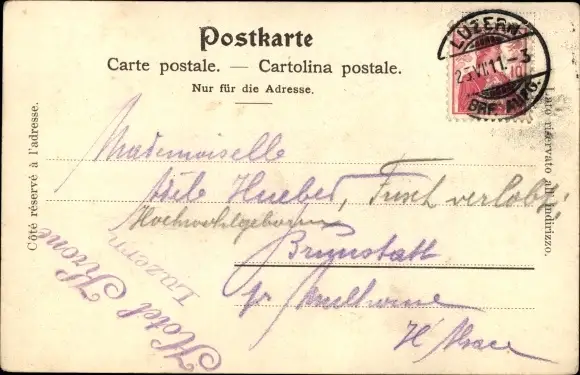 Postkarte
Carte postale. — Cartolina postale.
Nur für die Adresse.
LUZERN
25.VII.11.-3
BRF. AUFG.
10
Côté réservé à l'adresse.
Lato riservato all'indirizzo.
Mademoiselle
Adèle Hueber,
Hochwohlgeboren
Brunstatt
pr Mulhouse
H' Alsace
Hotel Krone
Luzern